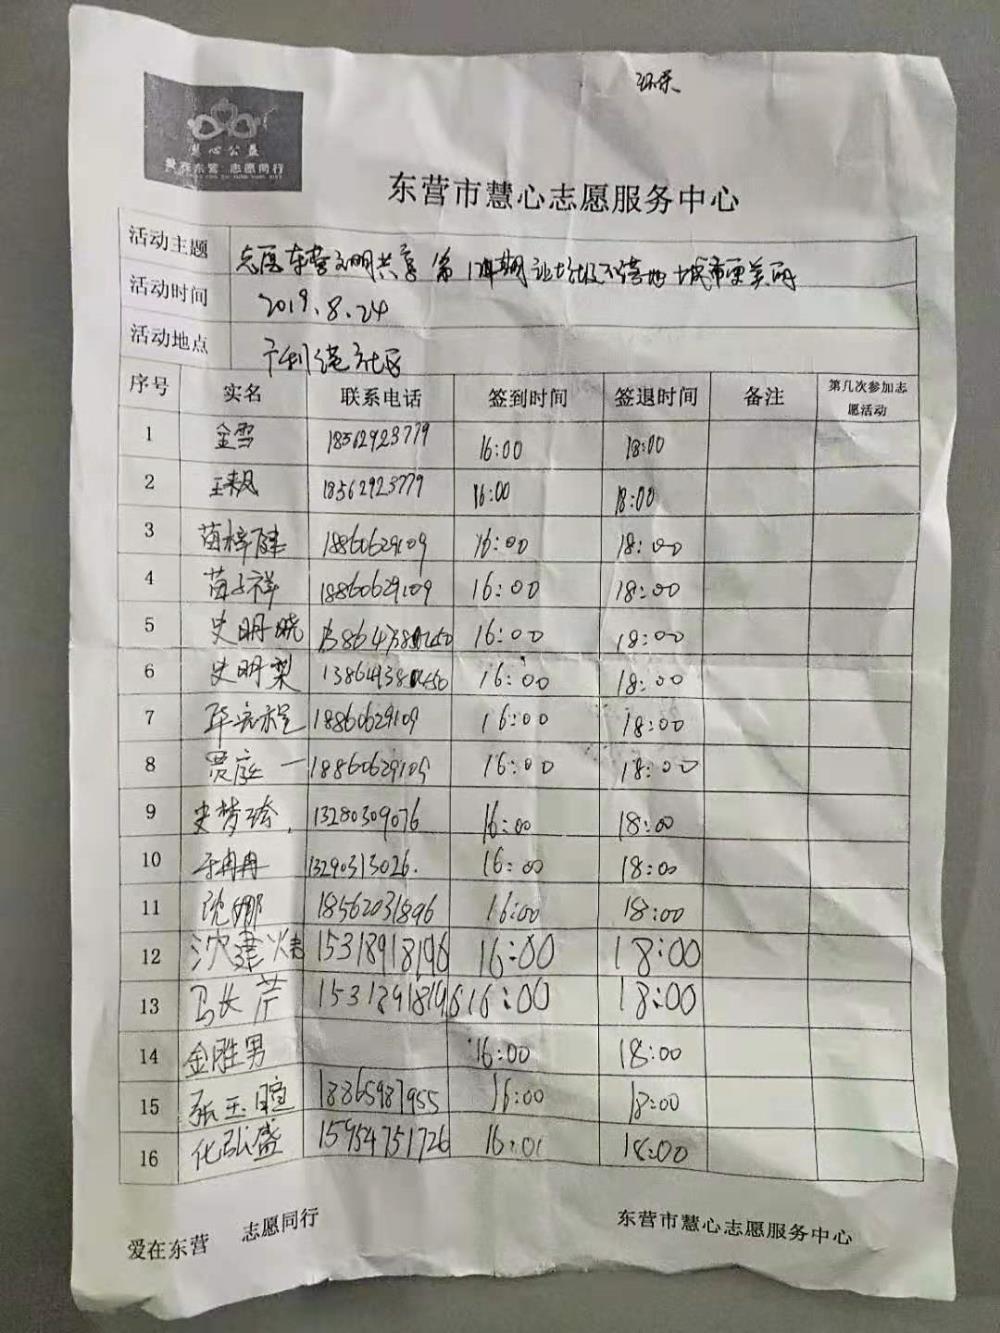 环保
慧心公益
爱在东营 志愿同行
东营市慧心志愿服务中心
活动主题 志愿东营文明共享 第 期 让垃圾不落地 城市更美丽
活动时间 2019.8.24
活动地点 利港社区
序号 实名 联系电话 签到时间 签退时间 备注 第几次参加志愿活动
1 金雪 18562923779 16:00 18:00
2 18562923779 16:00 18:00
3 苗梓健 18860629109 16:00 18:00
4 苗子祥 18860629109 16:00 18:00
5 史明晓 16:00 18:00
6 史明梨 16:00 18:00
7 18860629109 16:00 18:00
8 贾庭一 18860629109 16:00 18:00
9 史梦 13280309076 16:00 18:00
10 于冉冉 13290313026. 16:00 18:00
11 沈娜 18562031896 16:00 18:00
12 沈建 15318918196 16:00 18:00
13 马长芹 16:00 18:00
14 金胜男 16:00 18:00
15 张玉暄 18365987955 16:00 18:00
16 化弘盛 15954751726 16:00 18:00
爱在东营 志愿同行 东营市慧心志愿服务中心